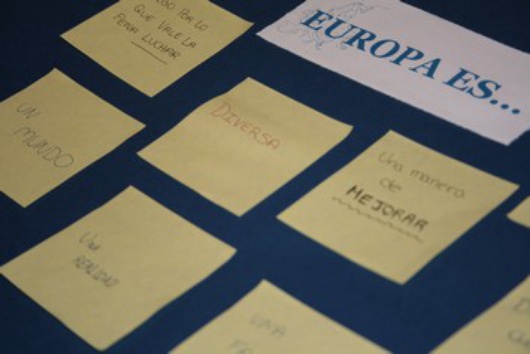 POR LO
QUE VALE LA
PENA LUCHAR
EUROPA ES...
UN
MUNDO
DIVERSA
Una manera
de
MEJORAR
UNA
REALIDAD
UNA